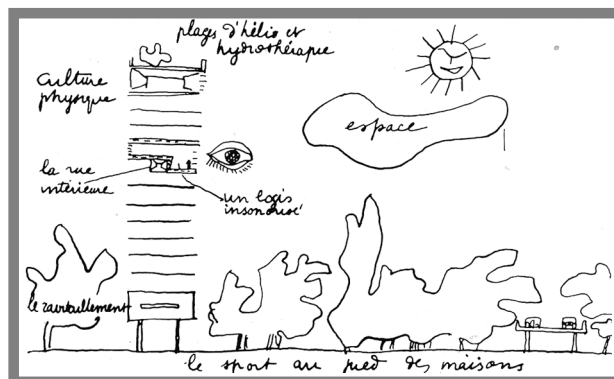 plages d'hélio et
hydrothérapie
culture
physique
espace
la rue
intérieure
un logis
insonorisé
le ravitaillement
le sport au pied des maisons